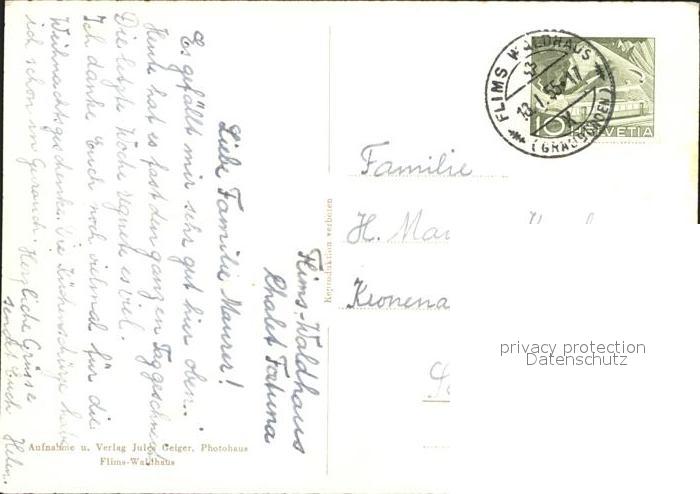 Flims-Waldhaus
Chalet Fortuna
Liebe Familie Maurer!
Es gefällt mir sehr gut hier oben.
Heute hat es fast den ganzen Tag geschneit.
Die letzte Woche regnete es viel.
Ich danke Euch noch vielmal für die
Weihnachtsgeschenke. Die Küchenschürze habe
ich schon im Gebrauch. Herzliche Grüsse
sendet Euch Helen.
Aufnahme u. Verlag Jules Geiger, Photohaus
Flims-Waldhaus
Reproduktion verboten
FLIMS WALDHAUS
(GRAUBÜNDEN)
10
HELVETIA
Familie
H.
privacy protection
Datenschutz